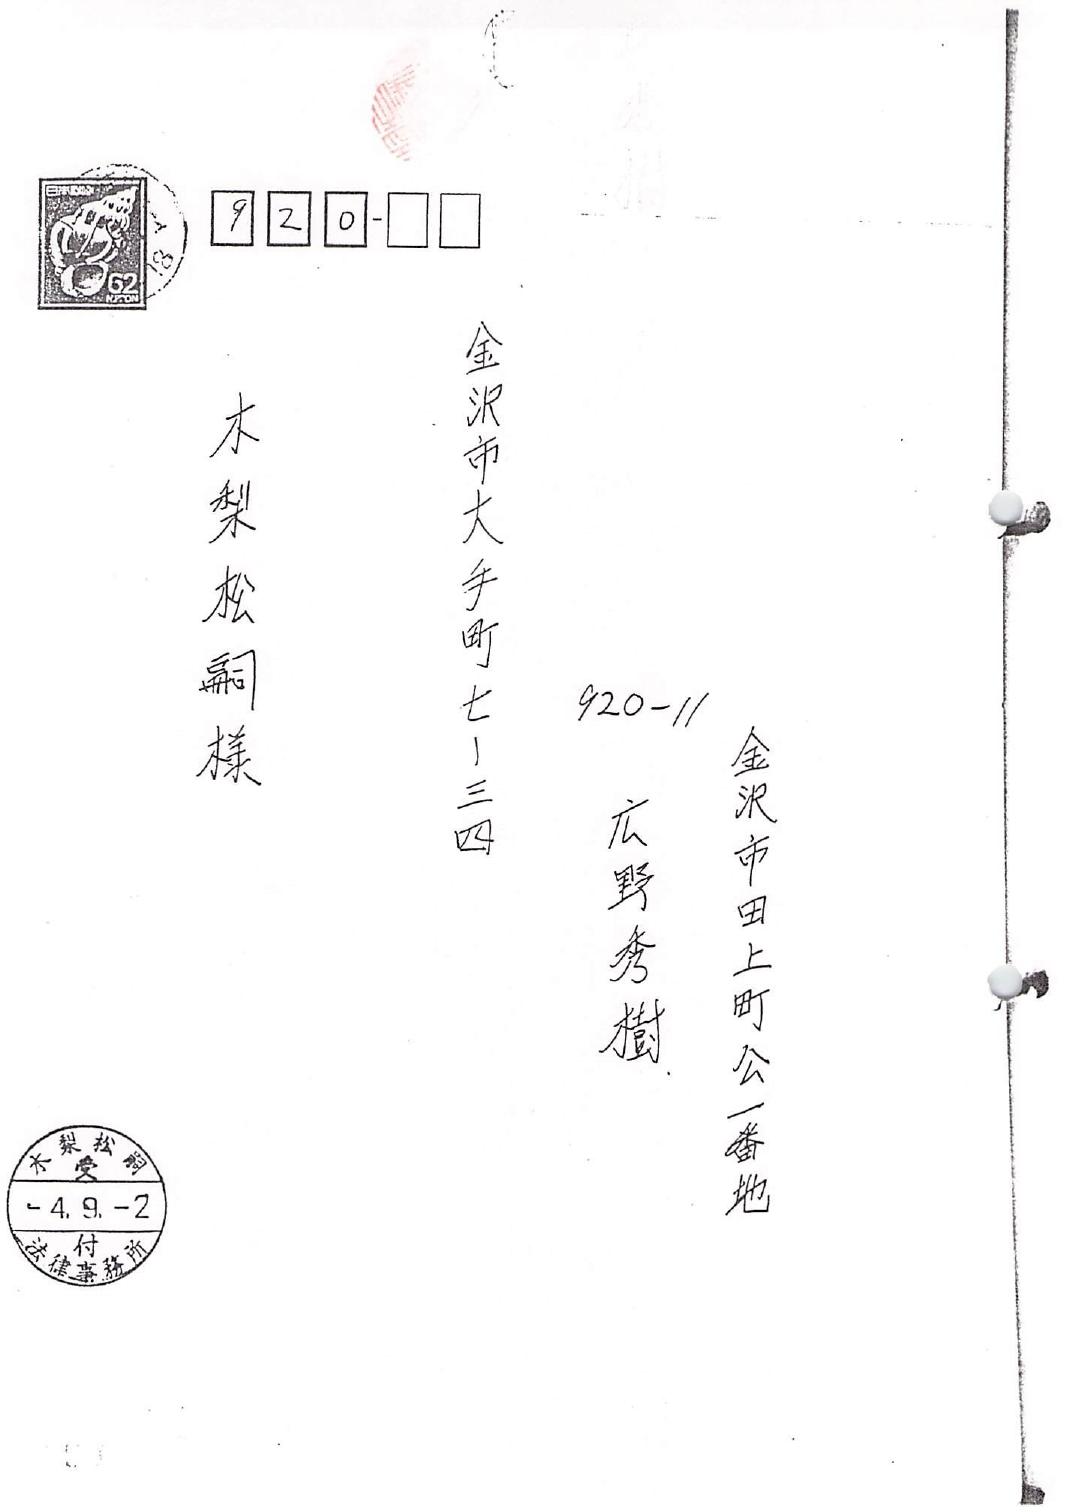 日本郵便
62
NIPPON
920-
金沢市大手町七ー三四
木梨松嗣様
920-11
金沢市田上町公一番地
広野秀樹
木梨松嗣
受
-4.9.-2
付
法律事務所